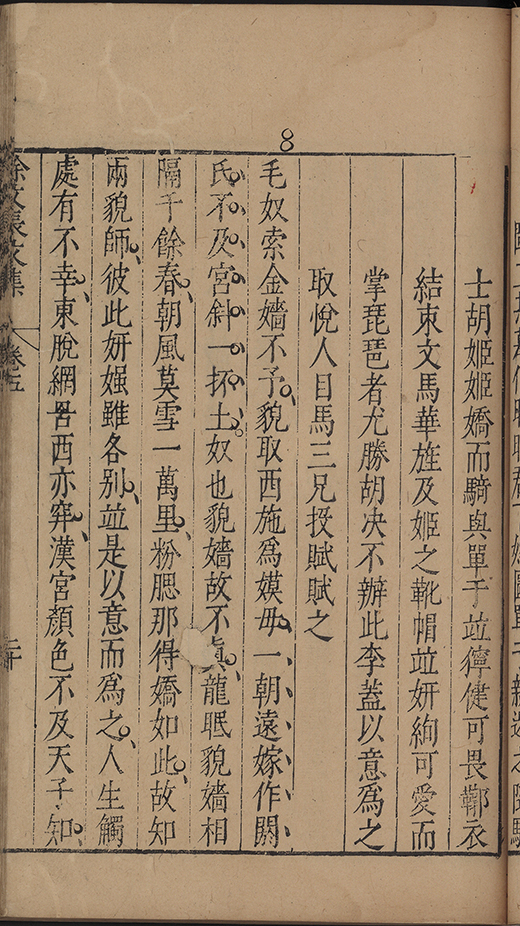 8
士胡姬姬嬌而騎與單于竝獰健可畏鞹衣
結束文馬華旌及姬之靴帽竝妍絢可愛而
掌琵琶者尤勝胡决不辦此李蓋以意爲之
取悅人目馬三兄授賦賦之
毛奴索金嬙不予貌取西施爲嫫毋一朝遠嫁作閼
氏不及宮斜一抔土奴也貌嬙故不眞龍眠貌嬙相
隔千餘春朝風莫雪一萬里粉腮那得嬌如此故知
兩貌師彼此妍媸雖各别竝是以意而爲之人生觸
處有不幸東脫網罟西亦穽漢宮顏色不及天子知
徐文長文集 卷五 二十